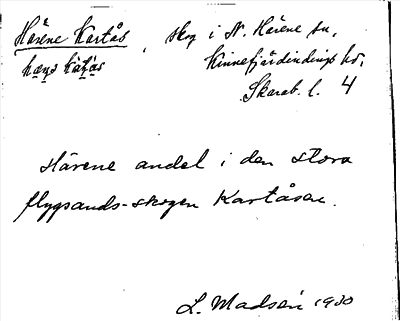 Härene Kartås, skog i N. Härene sn,
Kinnefjärdindings hd.
Skarab. l. 4
Härene andel i den stora
flygsands-skogen Kartåsen.
L. Madsén 1930